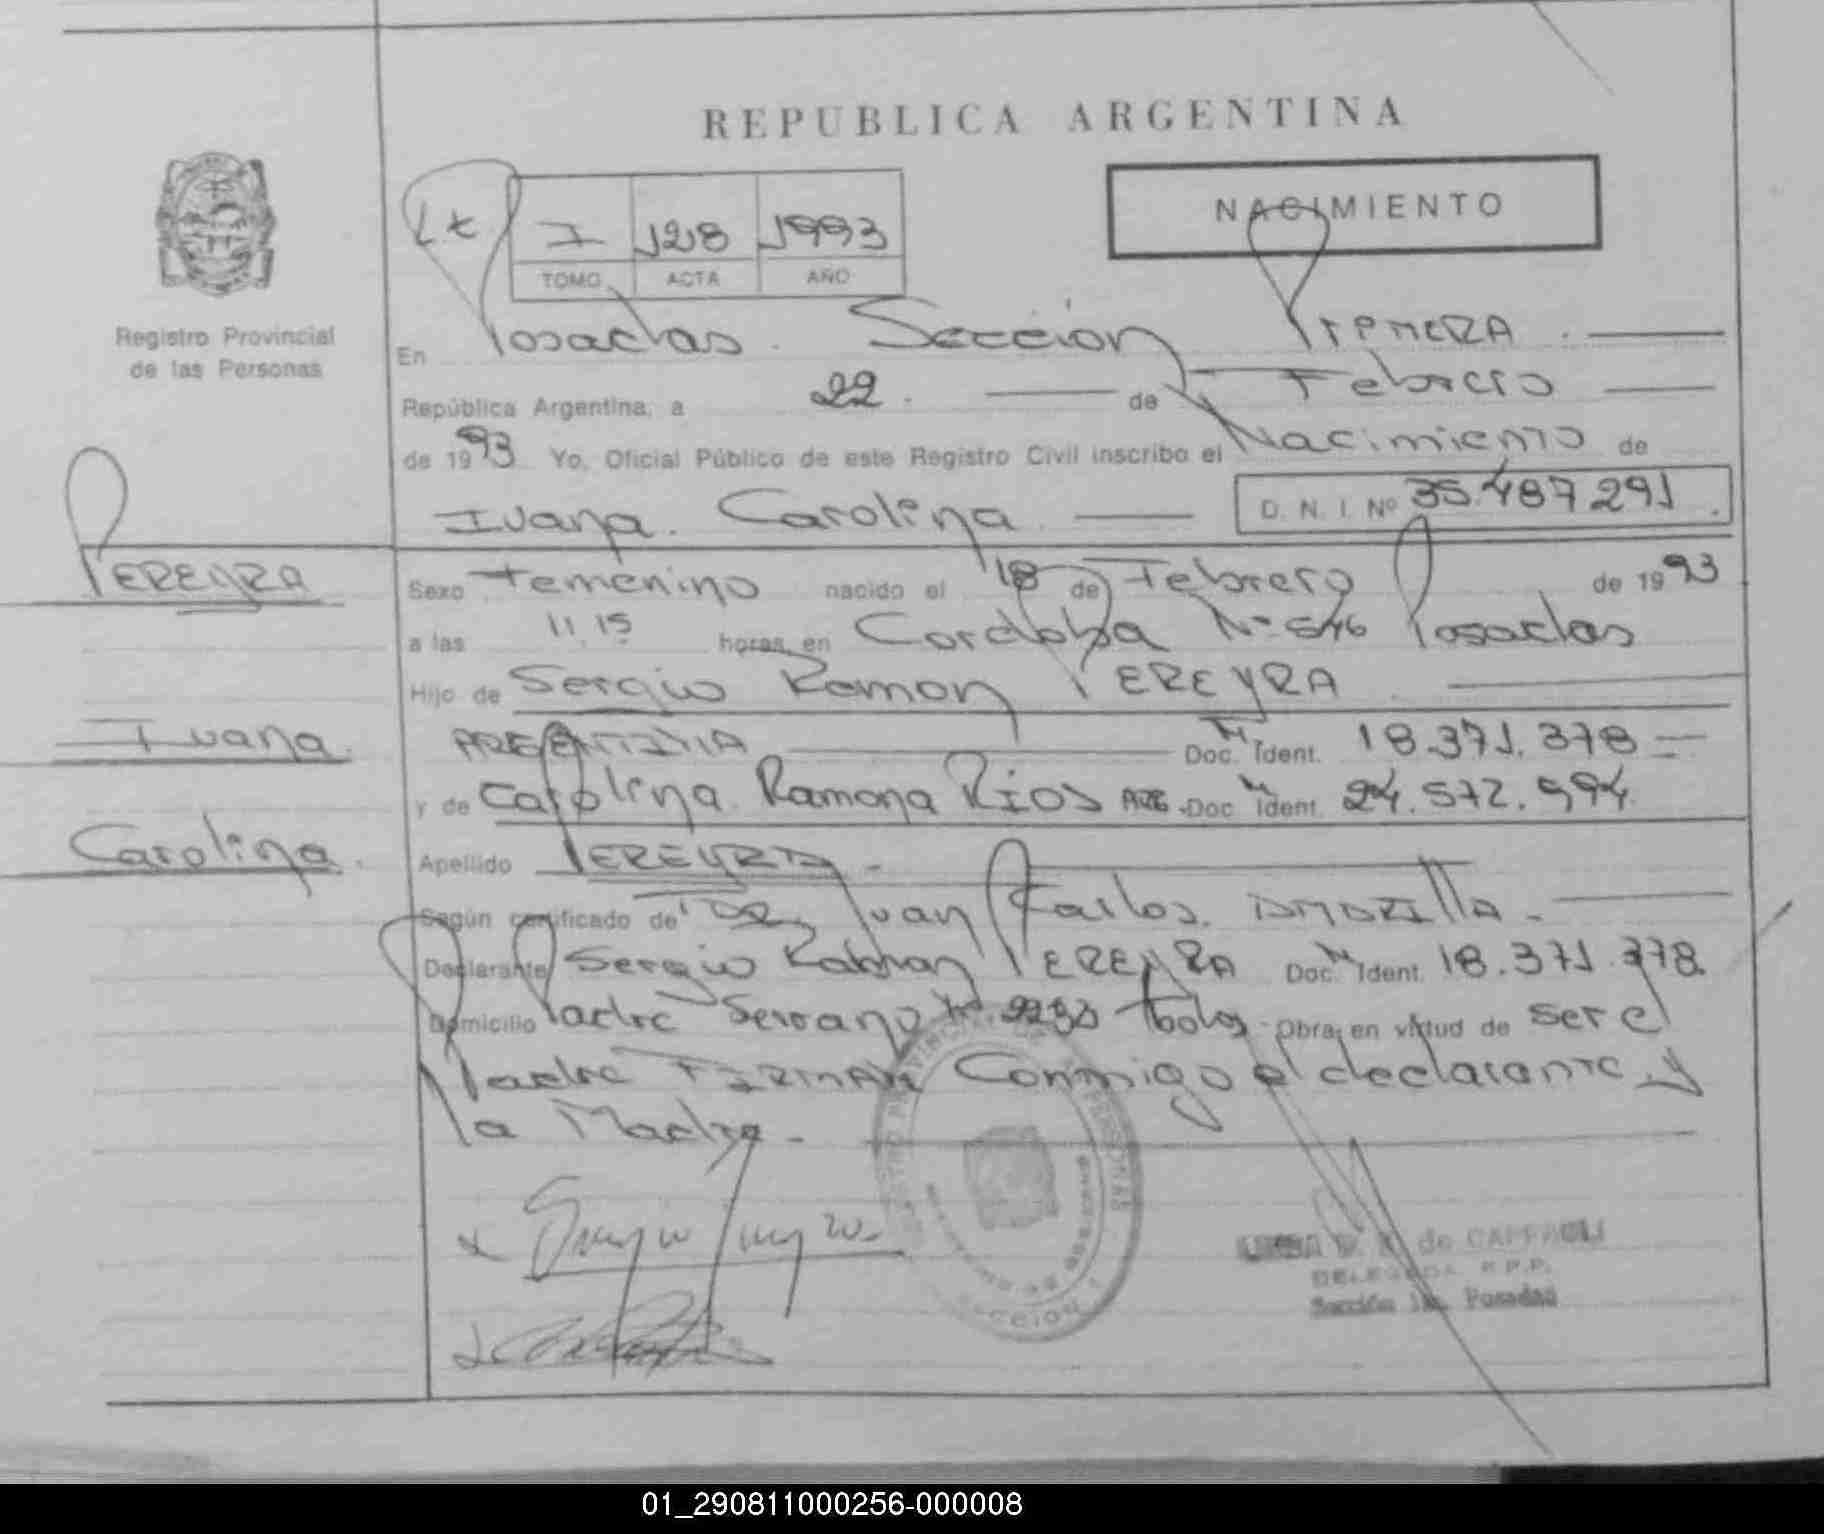 REPUBLICA ARGENTINA
NACIMIENTO
I 128 1993
TOMO ACTA AÑO
Registro Provincial
de las Personas
En Posadas. Sección Primera.
República Argentina, a 22. de Febrero
de 1993 Yo, Oficial Público de este Registro Civil inscribo el Nacimiento de
Ivana. Carolina D. N. I. Nº 35.487.291.
PEREYRA
Ivana.
Carolina.
Sexo Femenino nacido el 18 de Febrero de 1993
a las 11,15 horas, en Cordoba Nº 546 Posadas
Hijo de Sergio Ramon PEREYRA
ARGENTINA Doc. Ident. 18.371.378
y de Carolina Ramona Rios ARG. Doc. Ident. 24.572.994
Apellido PEREYRA -
Según certificado de Juan Carlos
Declarante Sergio Ramon PEREYRA Doc. Ident. 18.371.378
Domicilio Padre Serrano Nº Obra, en virtud de ser el
Padre FIRMAN Conmigo el declarante y
la Madre.-
de
DELEGADA R.P.P.
Sección 1a. Posadas
01_290811000256-000008